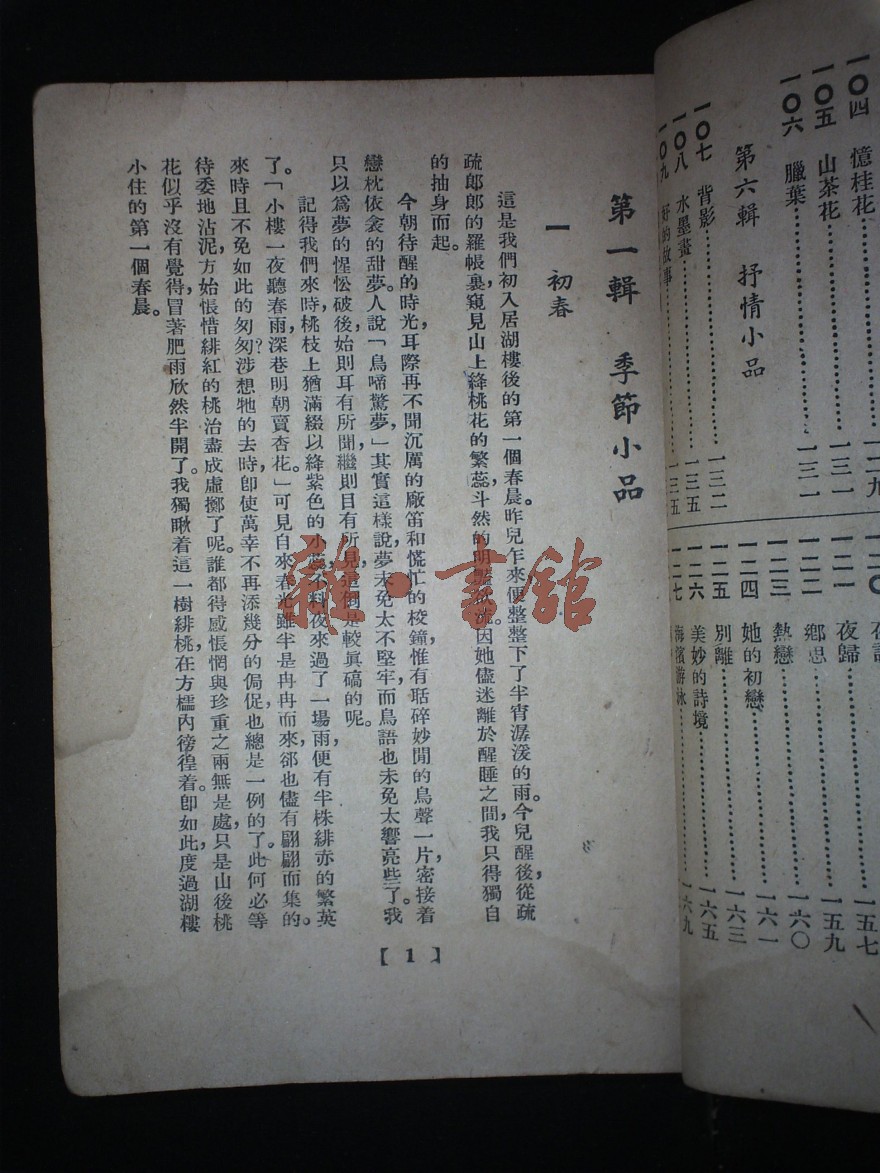 一〇四　憶桂花……一二九
一〇五　山茶花……一三一
一〇六　臘葉……一三一
第六輯　抒情小品
一〇七　背影……一三二
一〇八　水墨畫……一三五
一〇九　好的故事……一三五
一二〇
一二一　夜歸……一五七
一二二　鄉思……一五九
一二三　熱戀……一六〇
一二四　她的初戀……一六一
一二五　別離……一六三
一二六　美妙的詩境……一六五
一二七　海濱游泳……一六九
第一輯　季節小品
一　初春
這是我們初入居湖樓後的第一個春晨。昨兒乍來便整整下了半宵潺湲的雨。今兒醒後，從疏
疏郎郎的羅帳裏，窺見山上絳桃花的繁蕊，斗然的明豔欲流。因她儘迷離於醒睡之間，我只得獨自
的抽身而起。
今朝待醒的時光，耳際再不聞沉厲的廠笛和慌忙的校鐘，惟有聒碎妙閒的鳥聲一片，密接着
戀枕依衾的甜夢。人說「鳥啼驚夢，」其實這樣說，夢未免太不堅牢，而鳥語也未免太響亮些了。我
只以爲夢的惺忪破後，始則耳有所聞，繼則目有所見，這倒是較眞碻的呢。
記得我們來時，桃枝上猶滿綴以絳紫色的小蕊，不料夜來過了一場雨，便有半株緋赤的繁英
了。「小樓一夜聽春雨，深巷明朝賣杏花。」可見自來春光雖半是冉冉而來，卻也儘有翩翩而集的。
來時且不免如此的匆匆？涉想牠的去時，卽使萬幸不再添幾分的侷促，也總是一例的了。此何必等
待委地沾泥，方始悵惜緋紅的桃冶盡成虛擲了呢。誰都得感悵惘與珍重之兩無是處，只是山後桃
花似乎沒有覺得，冒著肥雨欣然半開了。我獨瞅着這一樹緋桃，在方櫺內徬徨着。卽如此，度過湖樓
小住的第一個春晨。
【1】
雜·書館